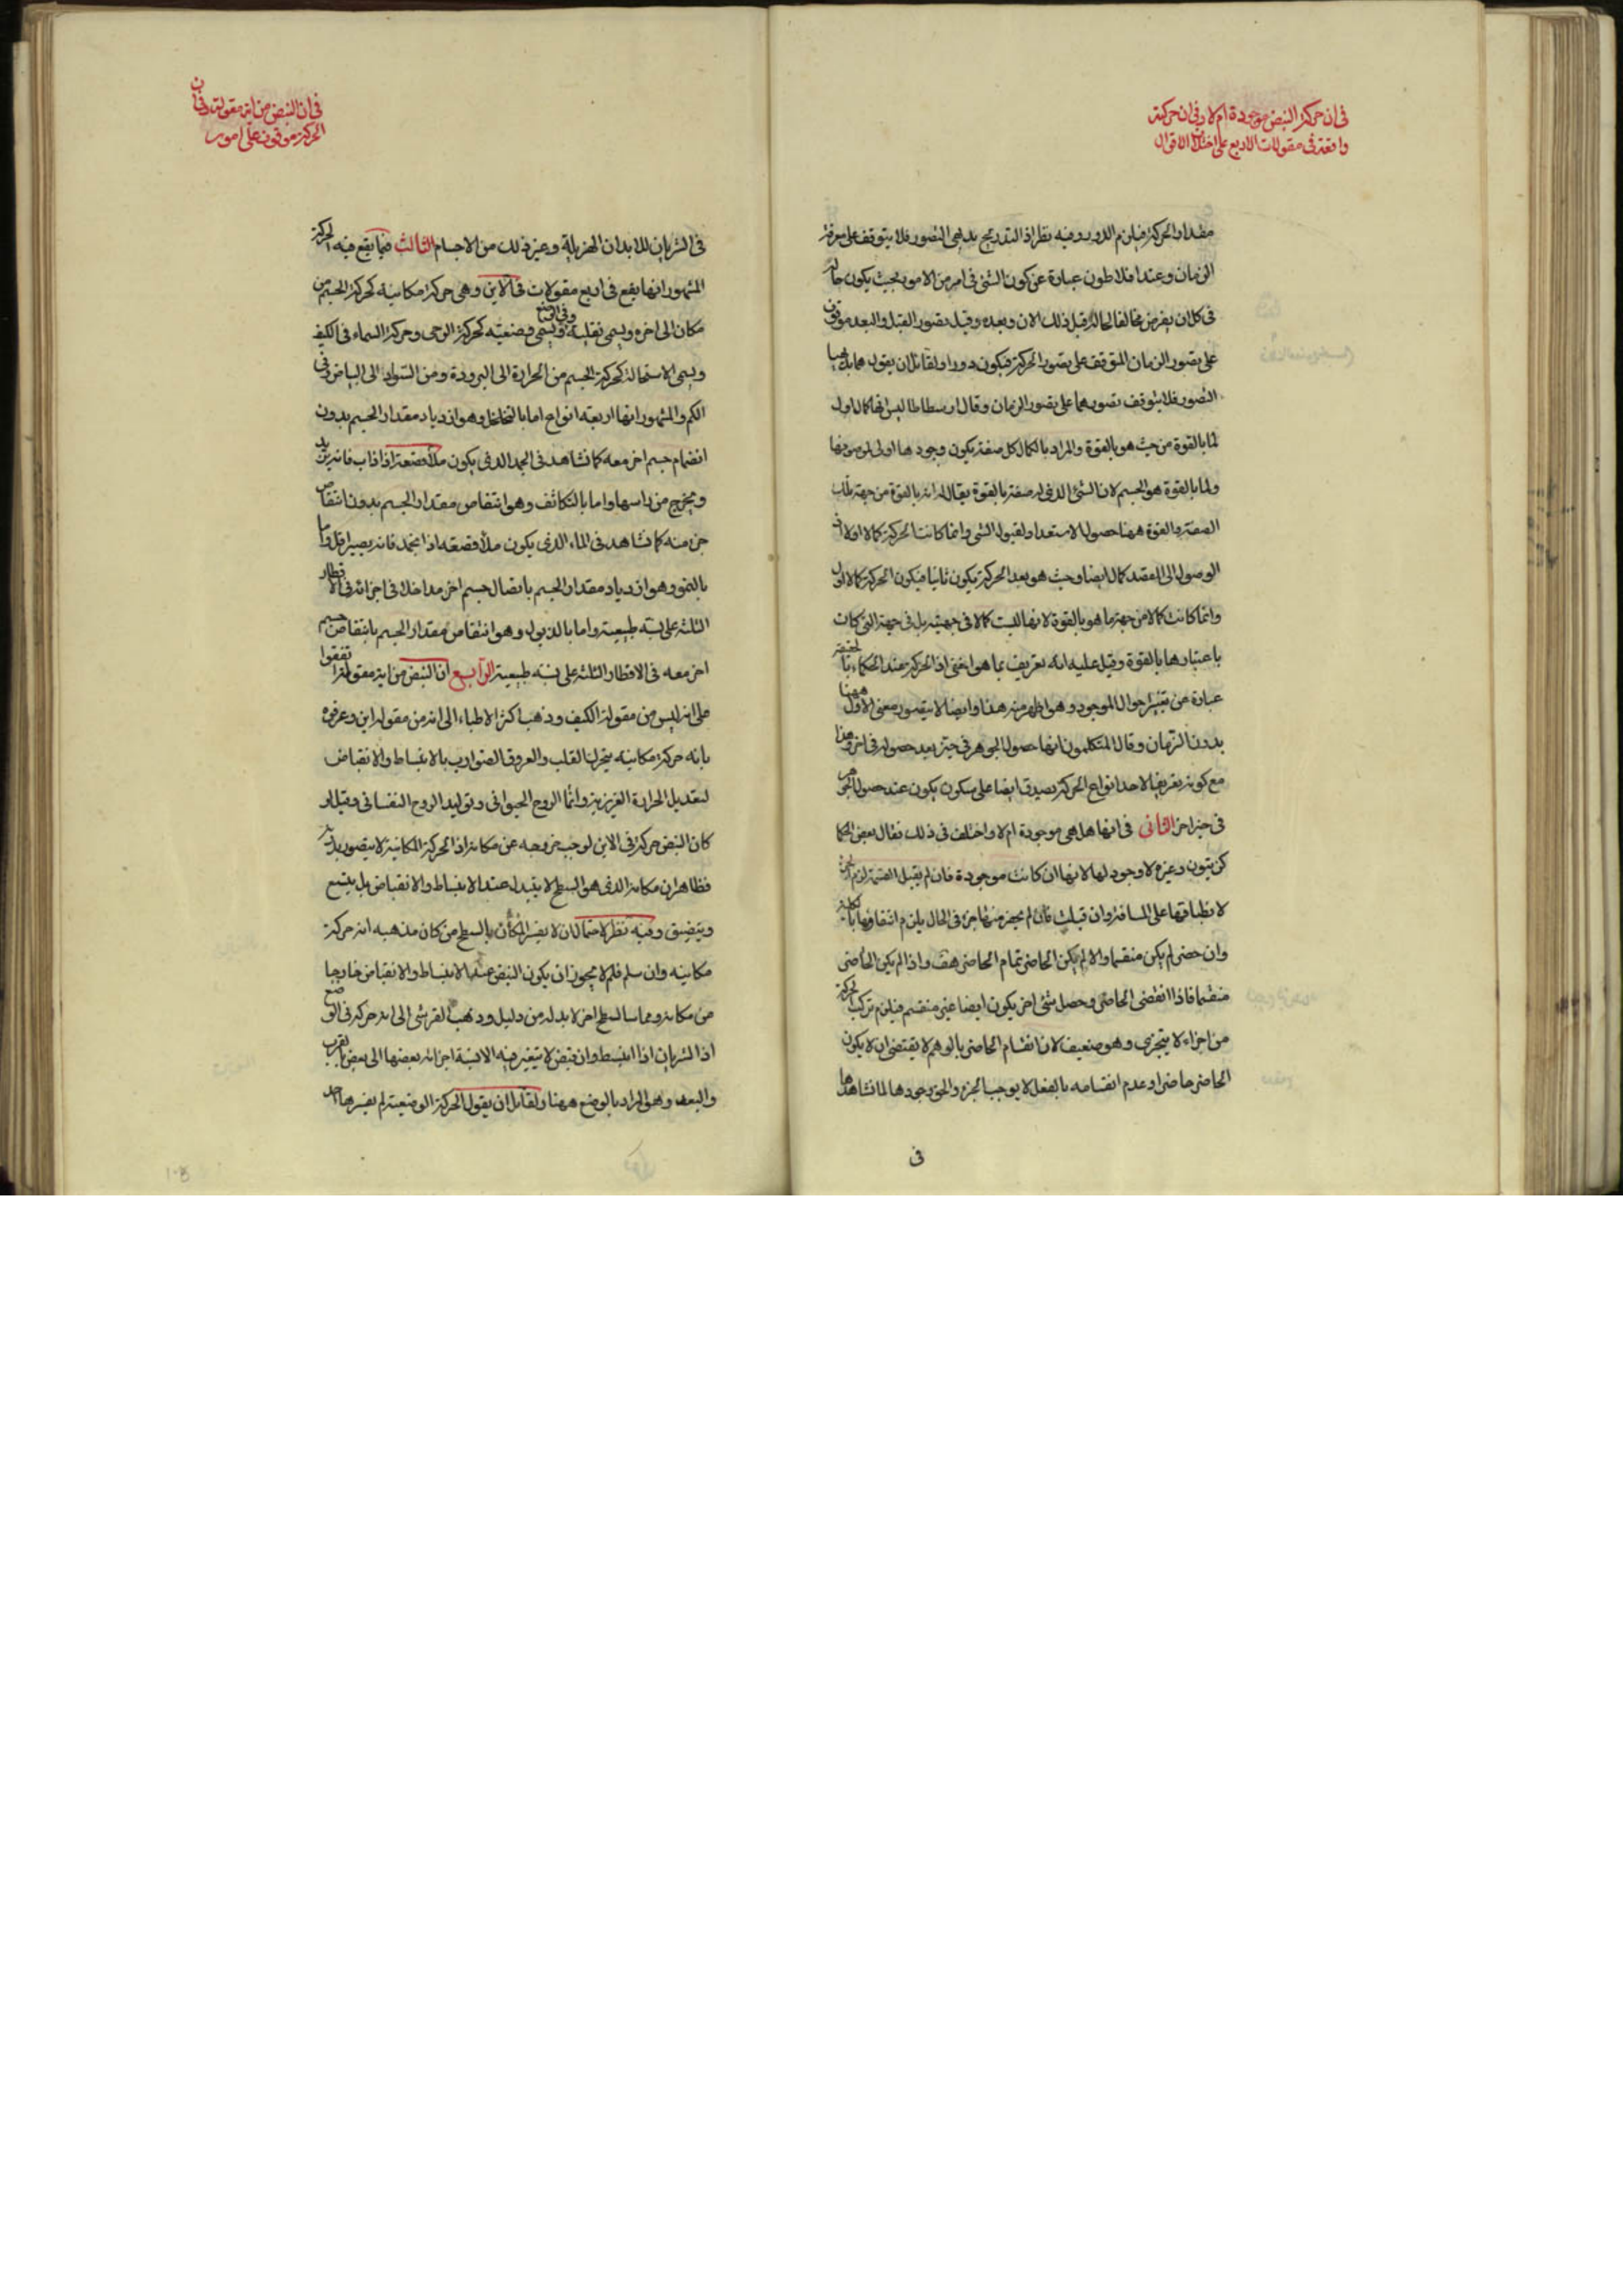 فى ان حركة النبض موجودة ام لا وفى ان حركته
واقعة فى مقولات الاربع على اختلاف الاقوال
مقدار الحركة فيلزم الدور وفيه نظر اذ التدريج بديهى التصور فلا يتوقف على معرفة
الزمان وعند افلاطون عبارة عن كون الشئ فى امر من الامور بحيث يكون حاله
فى كل ان يفرض مخالفا لحاله قبل ذلك الان وبعده وقيل تصور القبل والبعد موقوف
على تصور الزمان المتوقف على تصور الحركة فيكون دورا ولقائل ان يقول هما بديهيا
التصور فلا يتوقف تصورهما على تصور الزمان وقال ارسطاطاليس انها كمال اول
لما بالقوة من حيث هو بالقوة والمراد بالكمال كل صفة يكون وجودها اولى لموصوفها
ولما بالقوة هو الجسم لان الشئ الذى له صفة بالقوة يقال له انه بالقوة من جهة تلك
الصفة والقوة ههنا حصول الاستعداد لقبول الشى وانما كانت الحركة كمالا اولا لان
الوصول الى المقصد كمال ايضا وحيث هو بعد الحركة يكون ثانيا فيكون الحركة كمالا اول
وانما كانت كمالا من جهة ما هو بالقوة لانها ليست كمالا فى جهته بل فى جهة التى كان
باعتبارها بالقوة وقيل عليه انه تعريف بما هو اخفى اذ الحركة عند الحكماء بالحقيقة
عبارة عن تغير احوال الموجود وهو اظهر من هذا وايضا لا يتصور معنى الاول ههنا
بدون الزمان وقال المتكلمون انها حصول الجوهر فى حيز بعد حصوله فى اخر وهذا
مع كونه تعريفا لاحد انواع الحركة يصدق ايضا على سكون يكون عند حصول الجوهر
فى حيز اخر الثانى فى انها هل هى موجودة ام لا واختلف فى ذلك فقال بعض الحكما
كزيتون وغيره لا وجود لها لانها ان كانت موجودة فان لم يقبل القسمة لزم الجزء
لانطباقها على المسافة وان قبلت فان لم يحضر منها جزء فى الحال يلزم انتفاؤها بالكلية
وان حضر لم يكن منقسما والا لم يكن الحاضر تمام الحاضر هف واذا لم يكن الحاضر
منقسما فاذا انقضى الحاضر وحصل شئ اخر يكون ايضا غير منقسم فيلزم تركب الحركة
من اجزاء لا يتجزى وهو ضعيف لان انقسام الحاضر بالوهم لا يقتضى ان لا يكون
الحاضر حاضرا وعدم انقسامه بالفعل لا يوجب الجزء والحق وجودها لما نشاهدها
فى
فى ان النبض من اية مقولة وفى ان
الحركة موقوفة على امور
فى الشريان للابدان الهزيلة وغير ذلك من الاجسام الثالث فيما يقع فيه الحركة
المشهور انها يقع فى اربع مقولات فى الاين وهى حركة مكانية كحركة الجسم من
مكان الى اخر ويسمى نقلية وفى الوضع ويسمى وضعية كحركة الرحى وحركة السماء فى الكيف
ويسمى الاستحالة كحركة الجسم من الحرارة الى البرودة ومن السواد الى البياض وفى
الكم والمشهور انها اربعة انواع اما بالتخلخل وهو ازدياد مقدار الجسم بدون
انضمام جسم اخر معه كما نشاهد فى الجمد الذى يكون ملأ قصعة اذا ذاب فانه يزيد
ويخرج من راسها واما بالتكاثف وهو انتقاص مقدار الجسم بدون انتقاص
جزء منه كما نشاهد فى الماء الذى يكون ملأ قصعة اذا انجمد فانه يصير اقل واما
بالنمو وهو ازدياد مقدار الجسم باتصال جسم اخر مداخلة فى اجزائه فى الاقطار
الثلثة على نسبة طبيعية واما بالذبول وهو انتقاص مقدار الجسم بانتقاص جسم
اخر معه فى الاقطار الثلثة على نسبة طبيعية الرابع ان النبض من اية مقولة اتفقوا
على انه ليس من مقولة الكيف وذهب اكثر الاطباء الى انه من مقولة اين وعرفوه
بانه حركة مكانية يتحركها القلب والعروق الضوارب بالانبساط والانقباض
لتعديل الحرارة الغريزية وانما الروح الحيوانى وتوليد الروح النفسانى وقيل لو
كان النبض حركة فى الاين لوجب خروجه عن مكانه اذ الحركة المكانية لا يتصور بدونه
فظاهر ان مكانه الذى هو السطح لا يتبدل عند الانبساط والانقباض بل يتسع
ويتضيق وفيه نظر لاحتمال ان لا يفسر المكان بالسطح من كان مذهبه انه حركة
مكانية وان سلم فلم لا يجوز ان يكون النبض عند الانبساط والانقباض خارجا
من مكانه ومماسا لسطح اخر لا بد له من دليل وذهب القرشى الى انه حركة فى الوضع
اذ الشريان اذا انبسط وانقبض لا يتغير فيه الا نسبة اجزائه بعضها الى بعض بالقرب
والبعد وهو المراد بالوضع ههنا ولقائل ان يقول الحركة الوضعية لم يفسرها احد